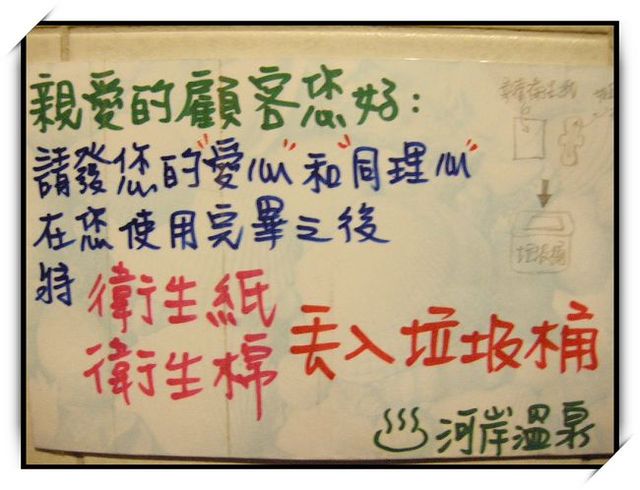 親愛的顧客您好：
請發您的"愛心"和"同理心"
在您使用完畢之後
將 衛生紙
衛生棉 丟入垃圾桶
河岸溫泉
垃圾桶